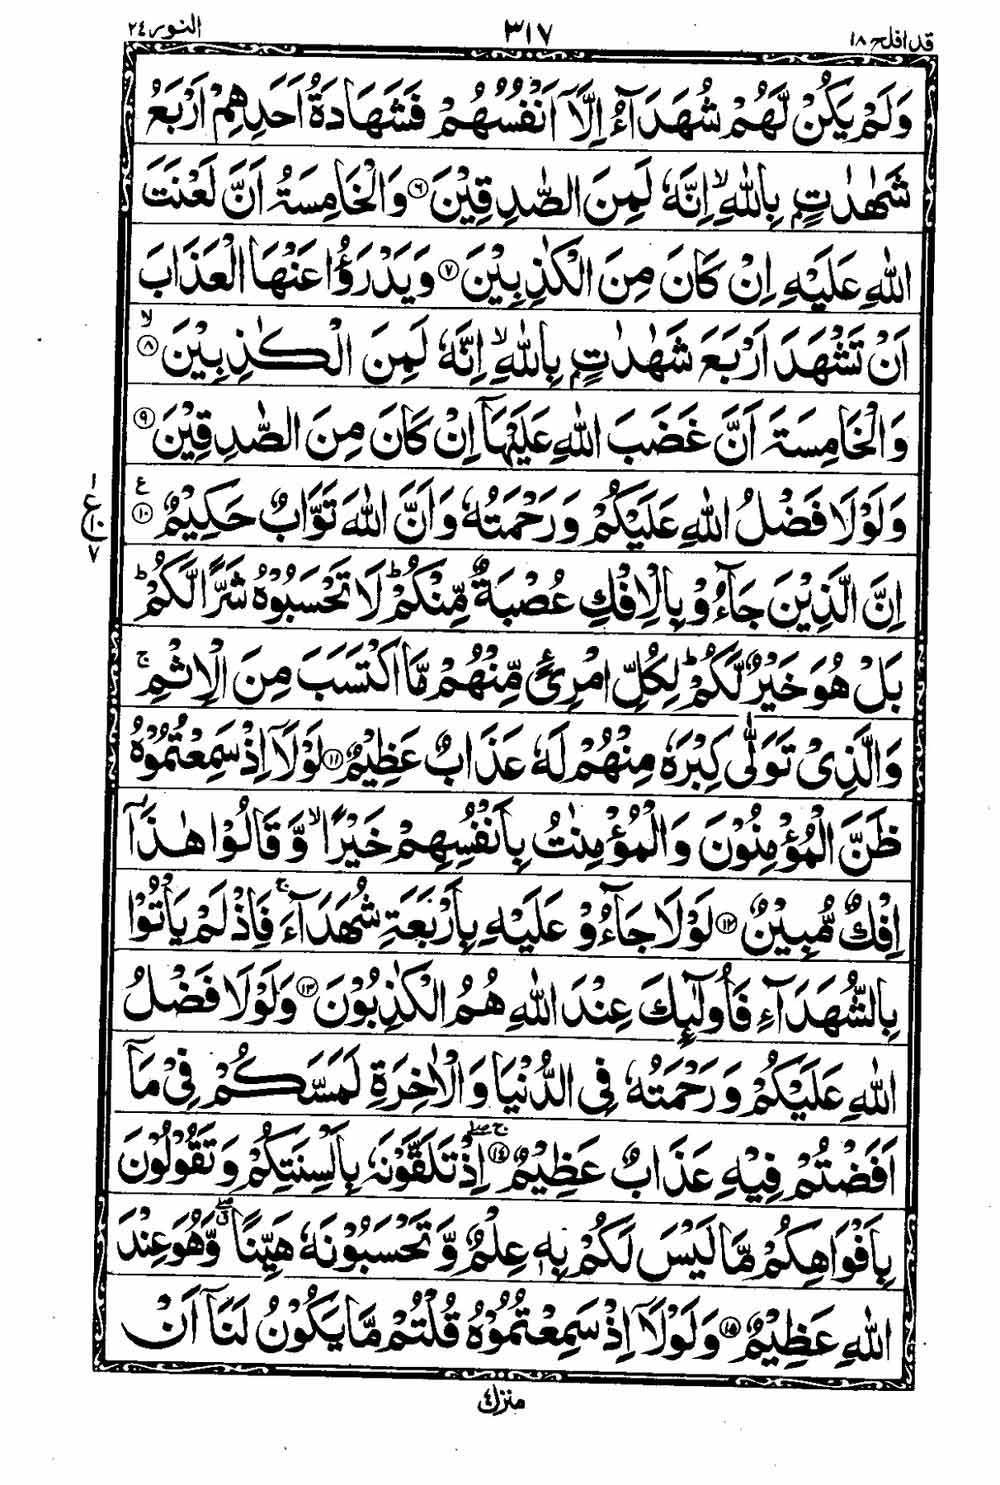 قد افلح ١٨ ٣١٧ النور ٢٤
وَلَمْ يَكُنْ لَّهُمْ شُهَدَآءُ اِلَّاۤ اَنْفُسُهُمْ فَشَهَادَةُ اَحَدِهِمْ اَرْبَعُ
شَهٰدٰتٍۭ بِاللّٰهِ ۙ اِنَّهٗ لَمِنَ الصّٰدِقِيْنَ ﴿٦﴾ وَالْخَامِسَةُ اَنَّ لَعْنَتَ
اللّٰهِ عَلَيْهِ اِنْ كَانَ مِنَ الْكٰذِبِيْنَ ﴿٧﴾ وَيَدْرَؤُا عَنْهَا الْعَذَابَ
اَنْ تَشْهَدَ اَرْبَعَ شَهٰدٰتٍۭ بِاللّٰهِ ۙ اِنَّهٗ لَمِنَ الْكٰذِبِيْنَ ﴿٨﴾ ۙ
وَالْخَامِسَةَ اَنَّ غَضَبَ اللّٰهِ عَلَيْهَاۤ اِنْ كَانَ مِنَ الصّٰدِقِيْنَ ﴿٩﴾
وَلَوْلَا فَضْلُ اللّٰهِ عَلَيْكُمْ وَرَحْمَتُهٗ وَاَنَّ اللّٰهَ تَوَّابٌ حَكِيْمٌ ﴿١٠﴾ ع
١ ع ١٠ ٧
اِنَّ الَّذِيْنَ جَآءُوْ بِالْاِفْكِ عُصْبَةٌ مِّنْكُمْ ؕ لَا تَحْسَبُوْهُ شَرًّا لَّكُمْ ؕ
بَلْ هُوَ خَيْرٌ لَّكُمْ ؕ لِكُلِّ امْرِئٍ مِّنْهُمْ مَّا اكْتَسَبَ مِنَ الْاِثْمِ ۚ
وَالَّذِيْ تَوَلّٰى كِبْرَهٗ مِنْهُمْ لَهٗ عَذَابٌ عَظِيْمٌ ﴿١١﴾ لَوْلَاۤ اِذْ سَمِعْتُمُوْهُ
ظَنَّ الْمُؤْمِنُوْنَ وَالْمُؤْمِنٰتُ بِاَنْفُسِهِمْ خَيْرًا ۙ وَّقَالُوْا هٰذَاۤ
اِفْكٌ مُّبِيْنٌ ﴿١٢﴾ لَوْلَا جَآءُوْ عَلَيْهِ بِاَرْبَعَةِ شُهَدَآءَ ۚ فَاِذْ لَمْ يَاْتُوْا
بِالشُّهَدَآءِ فَاُولٰٓئِكَ عِنْدَ اللّٰهِ هُمُ الْكٰذِبُوْنَ ﴿١٣﴾ وَلَوْلَا فَضْلُ
اللّٰهِ عَلَيْكُمْ وَرَحْمَتُهٗ فِي الدُّنْيَا وَالْاٰخِرَةِ لَمَسَّكُمْ فِيْ مَاۤ
اَفَضْتُمْ فِيْهِ عَذَابٌ عَظِيْمٌ ﴿١٤﴾ ۚۖ اِذْ تَلَقَّوْنَهٗ بِاَلْسِنَتِكُمْ وَتَقُوْلُوْنَ
بِاَفْوَاهِكُمْ مَّا لَيْسَ لَكُمْ بِهٖ عِلْمٌ وَّتَحْسَبُوْنَهٗ هَيِّنًا ۖۗ وَّهُوَ عِنْدَ
اللّٰهِ عَظِيْمٌ ﴿١٥﴾ وَلَوْلَاۤ اِذْ سَمِعْتُمُوْهُ قُلْتُمْ مَّا يَكُوْنُ لَنَاۤ اَنْ
منزل ٤